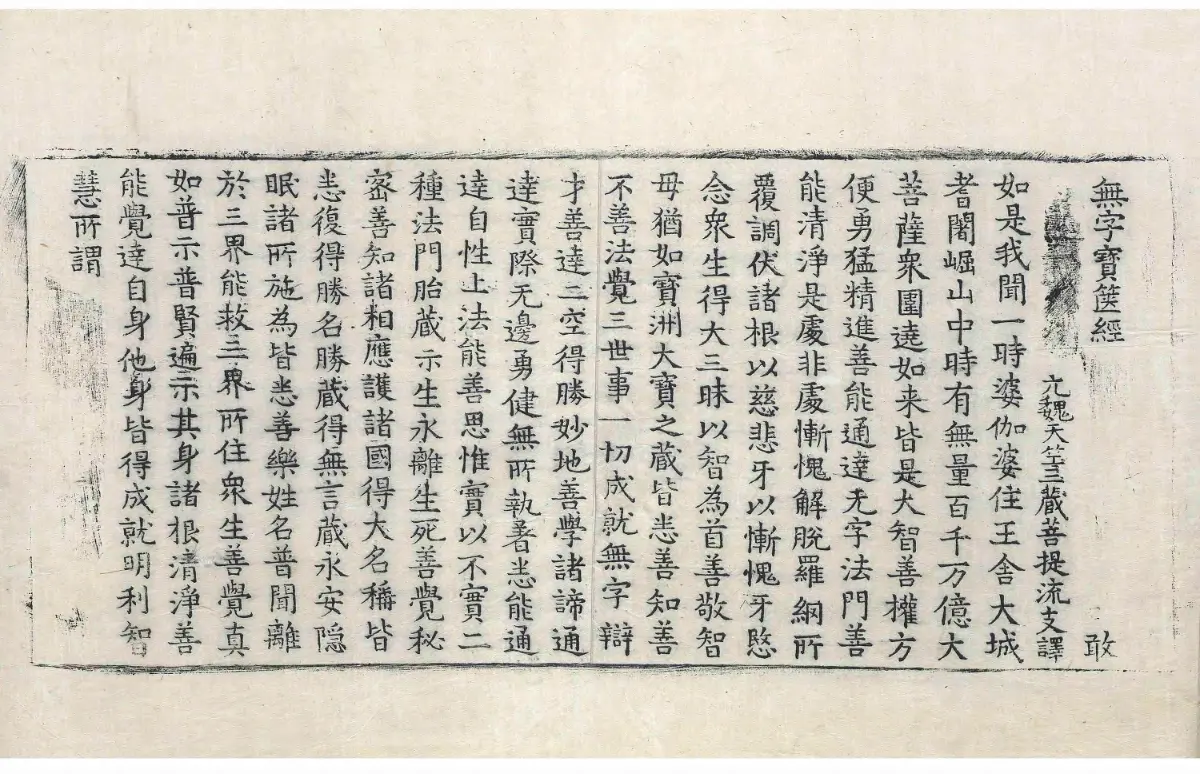 無字寶篋經 敢
元魏天竺三藏菩提流支譯
如是我聞一時婆伽婆住王舍大城
耆闍崛山中時有無量百千万億大
菩薩衆圍遶如来皆是大智善權方
便勇猛精進善能通達无字法門善
能清淨是處非處慚愧解脫羅網所
覆調伏諸根以慈悲牙以慚愧牙愍
念衆生得大三昧以智為首善敬智
母猶如寶洲大寶之蔵皆悉善知善
不善法覺三世事一切成就無字辯
才善達二空得勝妙地善學諸諦通
達實際无邊勇健無所執著悉能通
達自性上法能善思惟實以不實二
種法門胎蔵示生永離生死善覺秘
密善知諸相應護諸國得大名稱皆
悉復得勝名勝蔵得無言蔵永安隱
眠諸所施為皆悉善樂姓名普聞離
於三界能救三界所住衆生善覺真
如普示普賢遍示其身諸根清淨善
能覺達自身他身皆得成就明利智
慧所謂